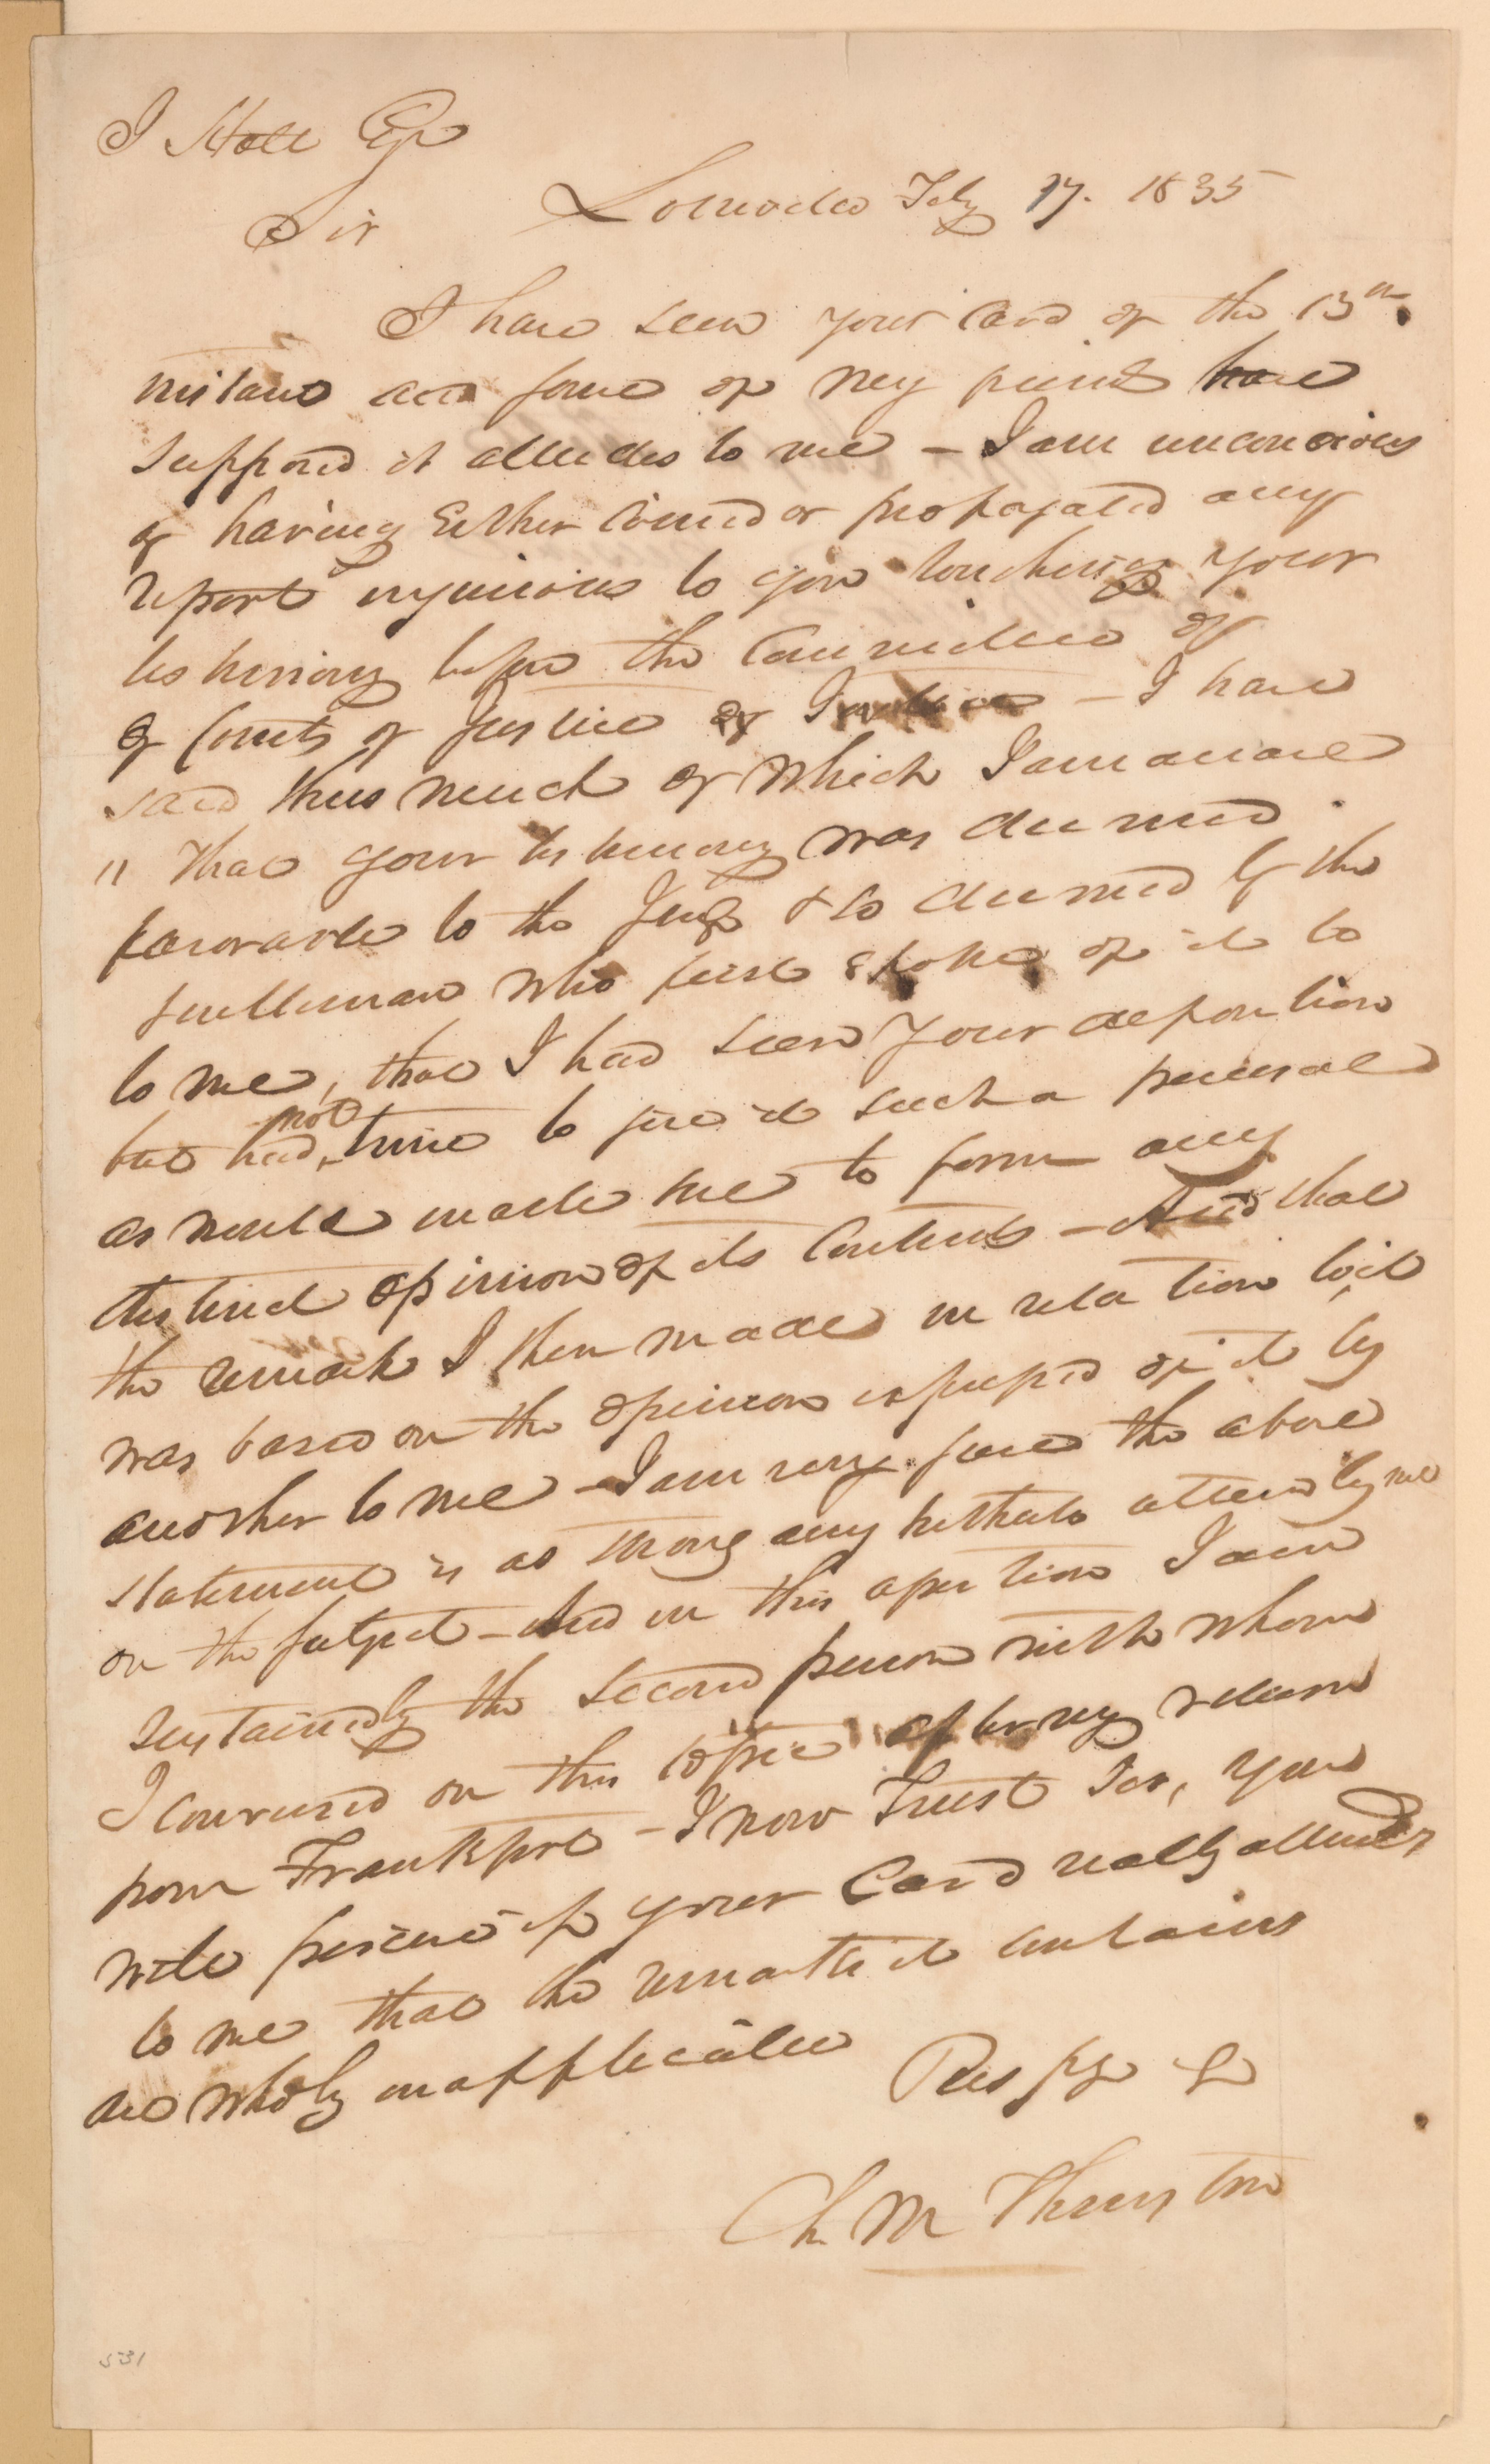 J Holt Esq
Louisville Feby 17. 1835
Sir
I have seen your Card of the 13th
instant and some of my friends have
supposed it alludes to me – I am unconcious
of having Either Coined or propagated any
report injurious to you touching your
testimony before the Committee of
of Courts of Justice – I have
said thus much of which I am aware
" That your testimony was deemed
favorable to the Judge & so deemed by the
gentleman who first spoke of it to
to me, that I had seen your deposition
but had not time to give it such a perusal
as would enable me to form any
distinct opinion of its Contents – And that
the remark I then made in relation to it
was based on the opinion expressed of it by
another to me – I am very sure the above
statement is as strong any hitherto uttered by me
on the subject – And in this assertion I am
sustained by the second person with whom
I conversed on this topic after my return
from Frankfort – I now Trust Sir, you
will perceive if your Card really alludes
to me that the remarks it contains
are wholly inapplicable
Respy &
Ch M Thruston
531